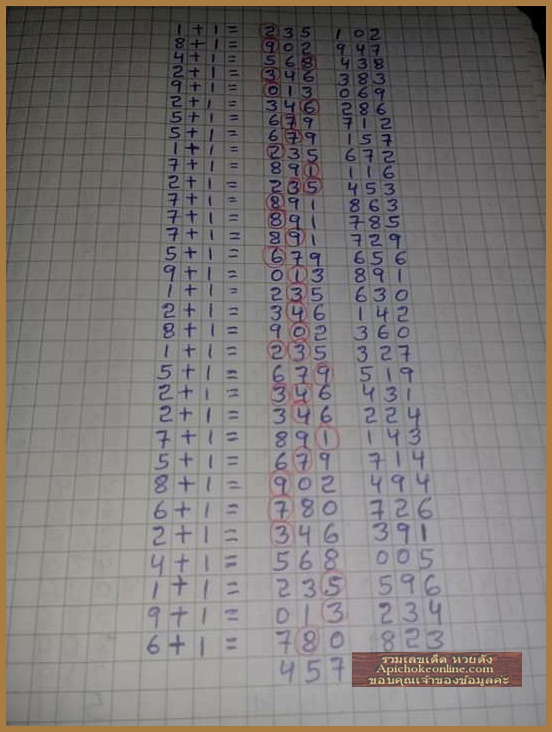 1 + 1 = 235 102
8 + 1 = 902 947
4 + 1 = 568 438
2 + 1 = 346 383
9 + 1 = 013 069
2 + 1 = 346 286
5 + 1 = 679 712
5 + 1 = 679 157
1 + 1 = 235 672
7 + 1 = 891 116
2 + 1 = 235 453
7 + 1 = 891 863
7 + 1 = 891 785
7 + 1 = 891 729
5 + 1 = 679 656
9 + 1 = 013 891
1 + 1 = 235 630
2 + 1 = 346 142
8 + 1 = 902 360
1 + 1 = 235 327
5 + 1 = 679 519
2 + 1 = 346 431
2 + 1 = 346 224
7 + 1 = 891 143
5 + 1 = 679 714
8 + 1 = 902 494
6 + 1 = 780 726
2 + 1 = 346 391
4 + 1 = 568 005
1 + 1 = 235 596
9 + 1 = 013 234
6 + 1 = 780 823
457
รวมเลขเด็ด หวยดัง
Apichokeonline.com
ขอบคุณเจ้าของข้อมูลค่ะ